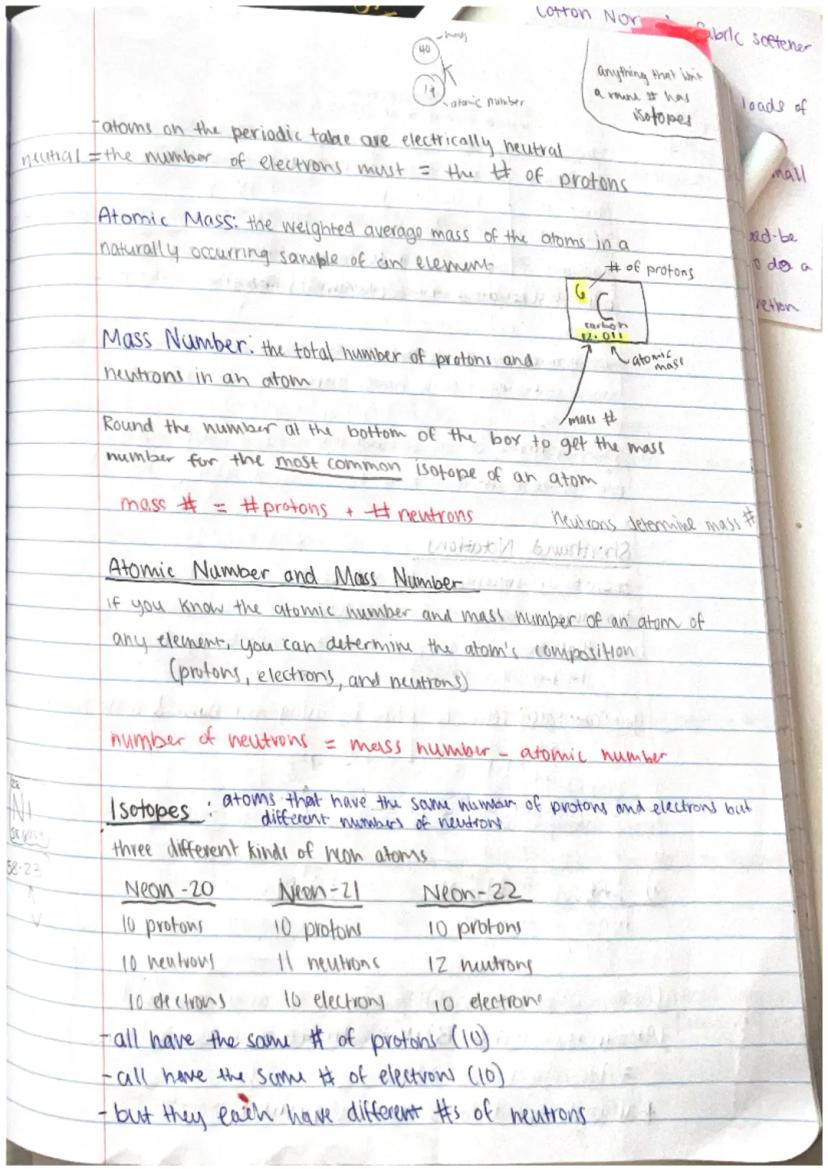 cotton
fabric softener
40 mass
K
19 atomic number
anything that isnt
a round # has
isotopes
loads of
-atoms on the periodic table are electrically neutral
neutral = the number of electrons must = the # of protons
Atomic Mass: the weighted average mass of the atoms in a
naturally occurring sample of an element
# of protons
6
C
carbon
12.011
atomic
mass
mass #
Mass Number: the total number of protons and
neutrons in an atom
Round the number at the bottom of the box to get the mass
number for the most common isotope of an atom
mass # = #protons + # neutrons
Neutrons determine mass #
Atomic Number and Mass Number
if you know the atomic number and mass number of an atom of
any element, you can determine the atom's composition
(protons, electrons, and neutrons)
number of neutrons = mass number - atomic number
Isotopes : atoms that have the same number of protons and electrons but
different numbers of neutrons
three different kinds of neon atoms
Neon -20 Neon -21 Neon-22
10 protons 10 protons 10 protons
10 neutrons 11 neutrons 12 neutrons
10 electrons 10 electrons 10 electrons
-all have the same # of protons (10)
-all have the same # of electrons (10)
-but they each have different #s of neutrons